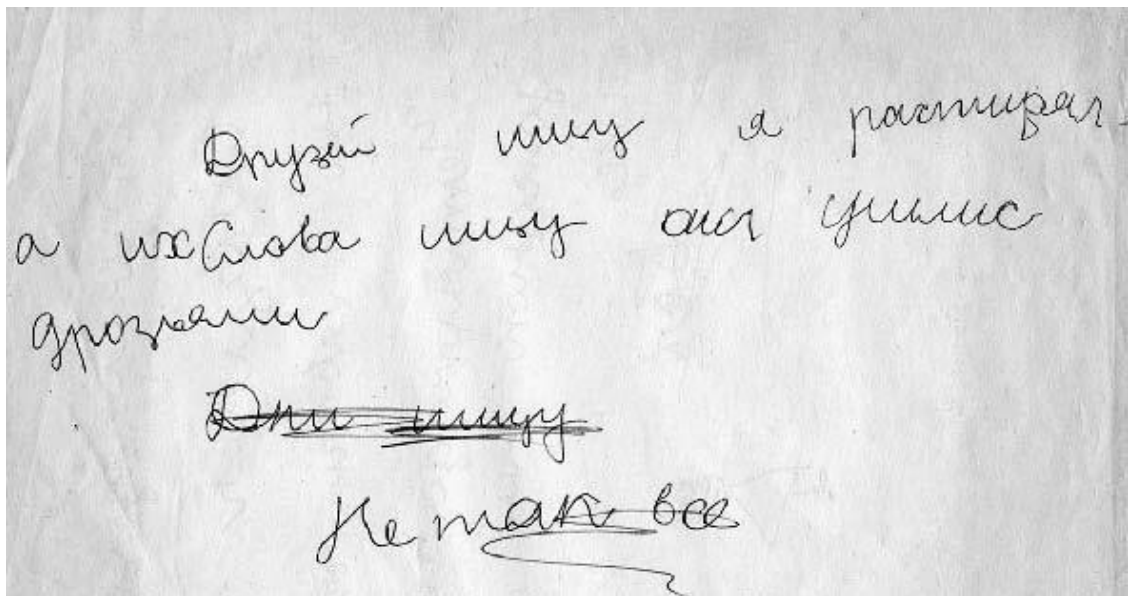 Друзей ищу я растирял-
а их Слова ищу они
дрозьями
Дни ищу
Не так все